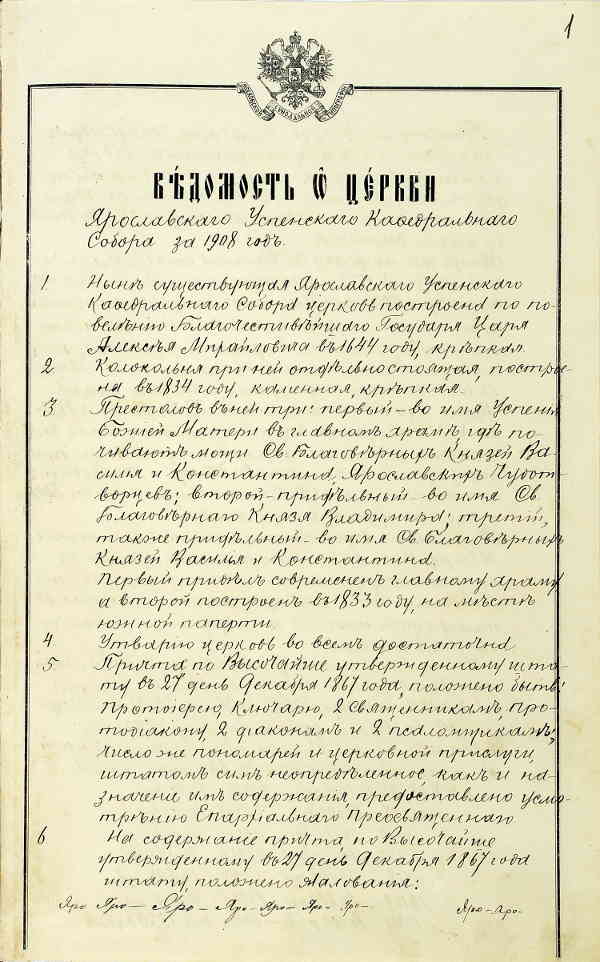 1
МОСКОВСКОЙ СѴНОДАЛЬНОЙ ТИПОГРАФІИ
ВѢ́ДОМОСТЬ Ѡ҆ ЦЕ́РКВИ
Ярославскаго Успенскаго Каѳедральнаго
Собора за 1908 годъ.
1 Нынѣ существующая Ярославскаго Успенскаго
Каѳедральнаго Собора церковь построена по по-
велѣнію Благочестивѣйшаго Государя Царя
Алексѣя Михайловича въ 1644 году, крѣпкая.
2 Колокольня при ней отдѣльностоящая, построе-
на въ 1834 году, каменная, крѣпкая.
3 Престоловъ въ ней три: первый – во имя Успенія
Божіей Матери въ главномъ храмѣ, гдѣ по-
чиваютъ мощи Св Благовѣрныхъ Князей Ва-
силія и Константина, Ярославскихъ Чудот-
ворцевъ; второй – придѣльный – во имя Св
Благовѣрнаго Князя Владимира; третій,
также придѣльный – во имя Св Благовѣрныхъ
Князей Василія и Константина.
Первый придѣлъ современенъ главному храму,
а второй построенъ въ 1833 году, на мѣстѣ
южной паперти.
4 Утварью церковь во всемъ достаточна
5 Причта по Высочайше утвержденному шта-
ту въ 27 день Декабря 1867 года, положено быть:
Протоіерею, Ключарю, 2 священникамъ, про-
тодіакону, 2 діаконамъ и 2 псаломщикамъ;
число же пономарей и церковной прислуги,
штатомъ симъ неопредѣленное, какъ и на-
значеніе имъ содержанія, предоставлено усмо-
трѣнію Епархіальнаго Преосвященнаго
6 На содержаніе причта, по Высочайше
утвержденному въ 27 день Декабря 1867 года
штату, положено жалованія:
Яро Яро – Яро – Яро – Яро – Яро – Яро – Яро – Яро.